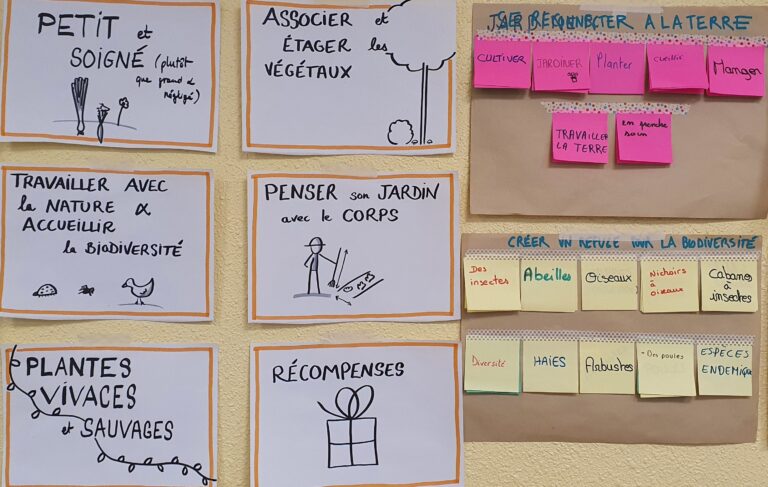 PETIT et
SOIGNÉ (plutôt
que grand &
négligé)
ASSOCIER et
ÉTAGER les
VÉGÉTAUX
TRAVAILLER AVEC
la NATURE &
ACCUEILLIR
la BIODIVERSITÉ
PENSER son JARDIN
avec le CORPS
PLANTES
VIVACES
et SAUVAGES
RÉCOMPENSES
SE RECONNECTER A LA TERRE
CULTIVER
JARDINER
Planter
cueillir
Manger
TRAVAILLER
LA TERRE
en prendre
soin
CRÉER UN REFUGE POUR LA BIODIVERSITÉ
Des
insectes
Abeilles
Oiseaux
Nichoirs
à
oiseaux
Cabanes
à
insectes
Diversité
HAIES
Arbustes
- Des poules
ESPÈCES
ENDEMIques